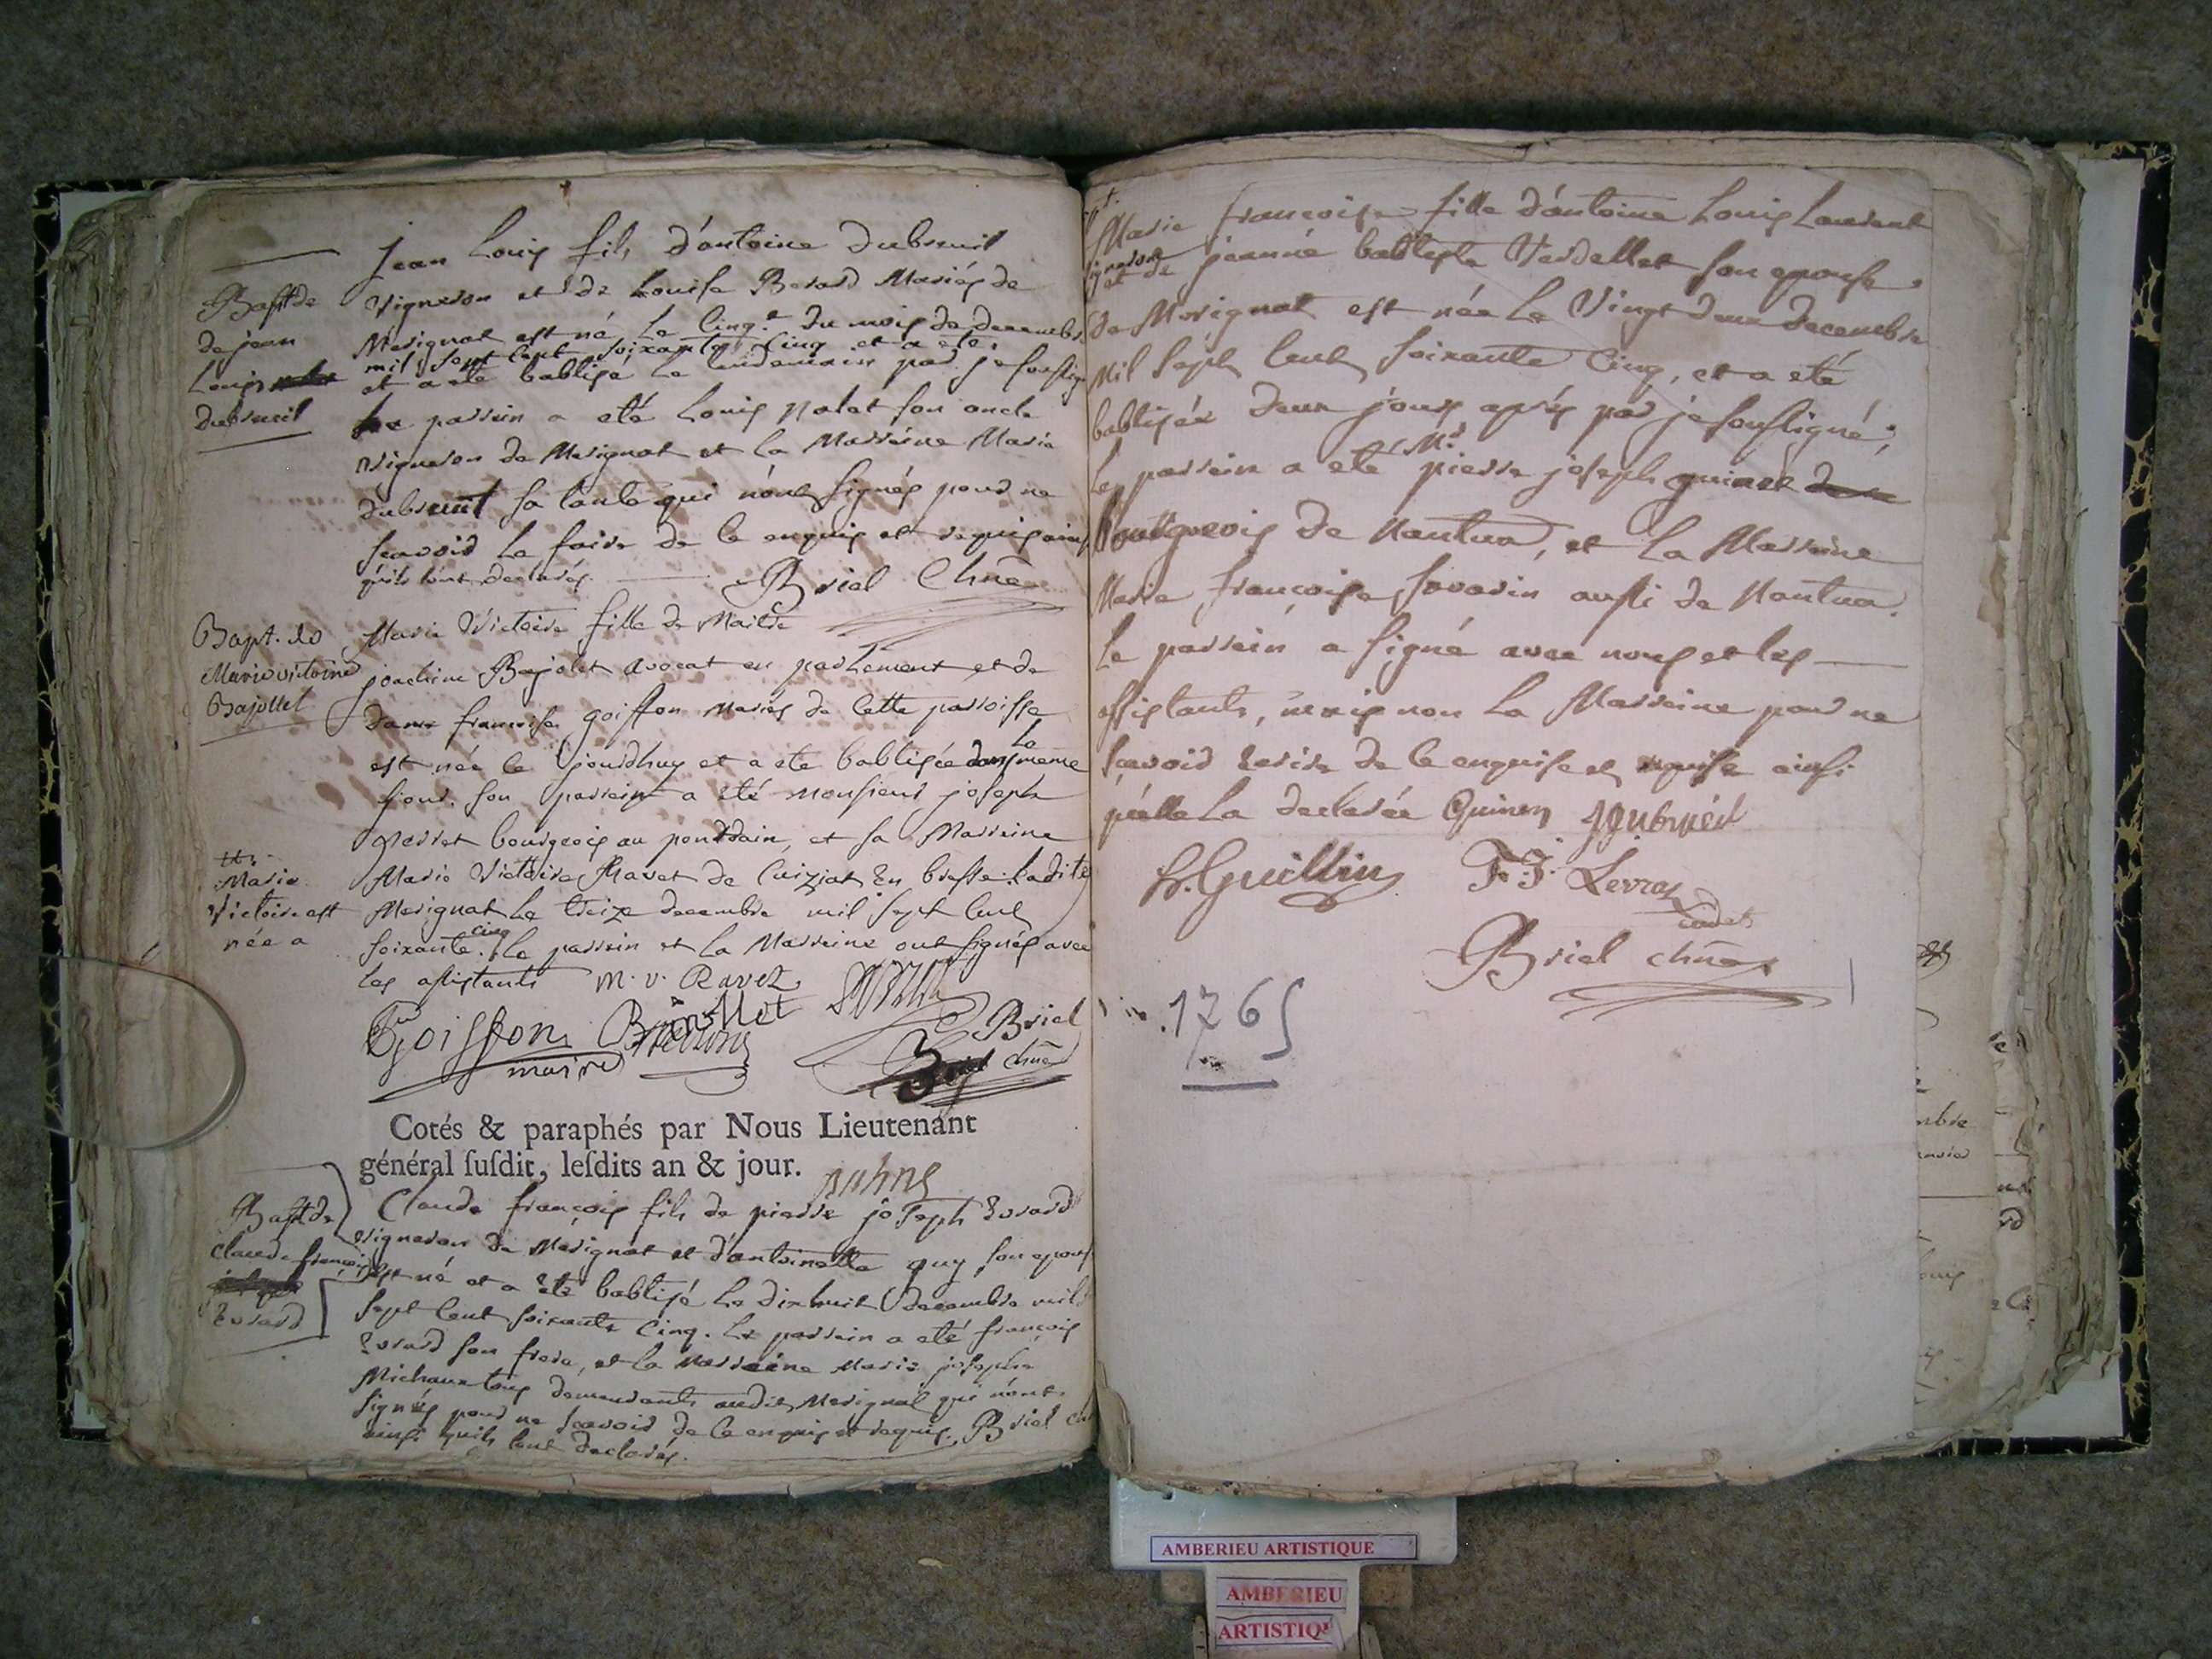 Bapt de
de jean
Louis
dubreuil
jean Louis fils d'antoine dubreuil
vigneron et de Louise Berard Mariés de
Merignat est né le Cinq.e du mois de decembre
mil sept cent soixante Cinq et a eté
et a eté babtisé le lendemain par je soussigné
le parrein a eté Louis nalet son oncle
vigneron de Merignat et la Marreine Marie
dubreuil sa tante qui n'ont signés pour ne
scavoir le faire de ce enquis et requis ainsi
qu'ils l'ont declarés. Briel Chne
Bapt. de
Marie victoire
Bajollet
Marie Victoire fille de Maitre
joachim Bajolet avocat en parlement et de
dame francoise goiffon mariés de cette parroisse
est née le jourdhuy et a ete babtisée dans le même
jour. son parrein a été monsieur joseph
perret bourgeois au pont dain, et sa Marreine
Marie Victoire Ravet de Cuiziat En bresse. Ladite
Marie
Victoire est
née a
Merignat Le treize decembre mil sept cent
soixante cinq. Le parrein et la Marreine ont signés avec
les assistants m. v. Ravet
Goiffon Bajollet
maire
Briel
chne
Cotés & paraphés par Nous Lieutenant
général susdit, lesdits an & jour.
Bapt de
claude françois
Evrard
Claude françois fils de pierre joseph Evrard
vigneron de Merignat et d'antoinette guy son epouse
est né et a été babtisé le dixhuit decembre mil
sept cent soixante Cinq. Le parrein a eté françois
Evrard son frere, et la marreine marie josephe
Michaux tous demeurants audit Merignat qui n'ont
signés pour ne scavoir de ce enquis et requis. Briel
ainsi qu'ils l'ont declarés.
Marie francoise fille d'antoine Louis Laurent
vigneron
et de jeanne babtiste Verdellet son epouse
de Merignat est née le Vingt deux decembre
Mil sept Cent soixante Cinq, et a eté
babtisée deux jours aprés par je soussigné;
Le parrein a eté Mr pierre joseph guinet
Bourgeois de Nantua, et la Marreine
Marie françoise savarin aussi de Nantua.
Le parrein a signé avec nous et les
assistants, mais non la Marreine pour ne
scavoir Ecrire de ce enquise et requise ainsi
quelle la declarée Guinet J Dubrueil
Guillin F. J. Levrat
cadet
Briel chne
1765
AMBERIEU ARTISTIQUE
AMBERIEU
ARTISTIQ